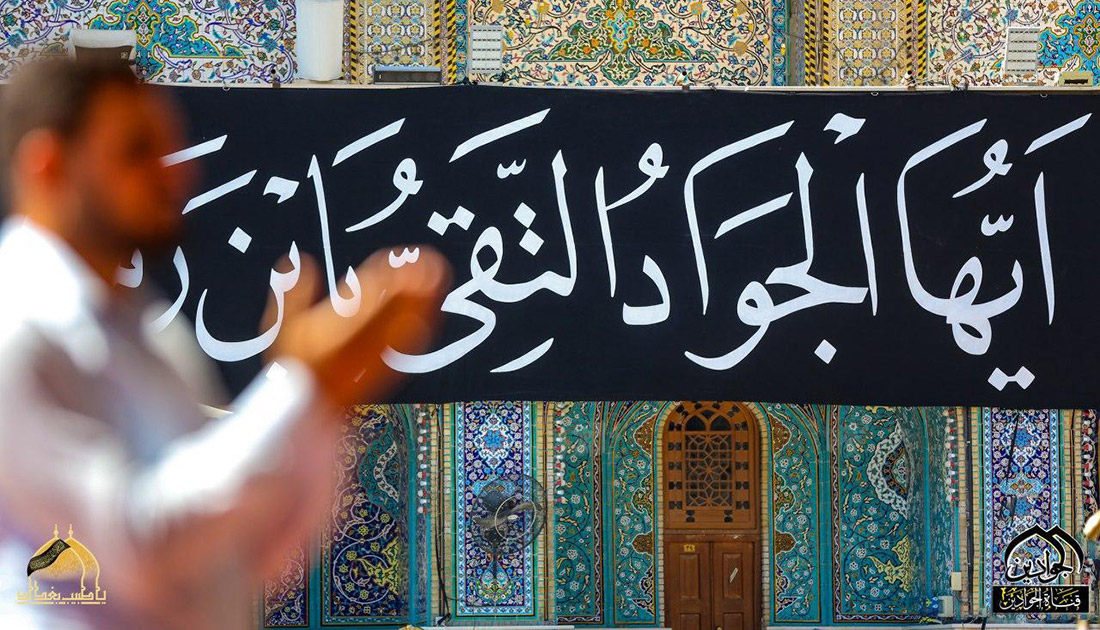 اَيُّهَا الْجَوَادُ التَّقِىُّ يَابْنَ
يا طبيب بغداد
الجوادين
قناة الجوادين